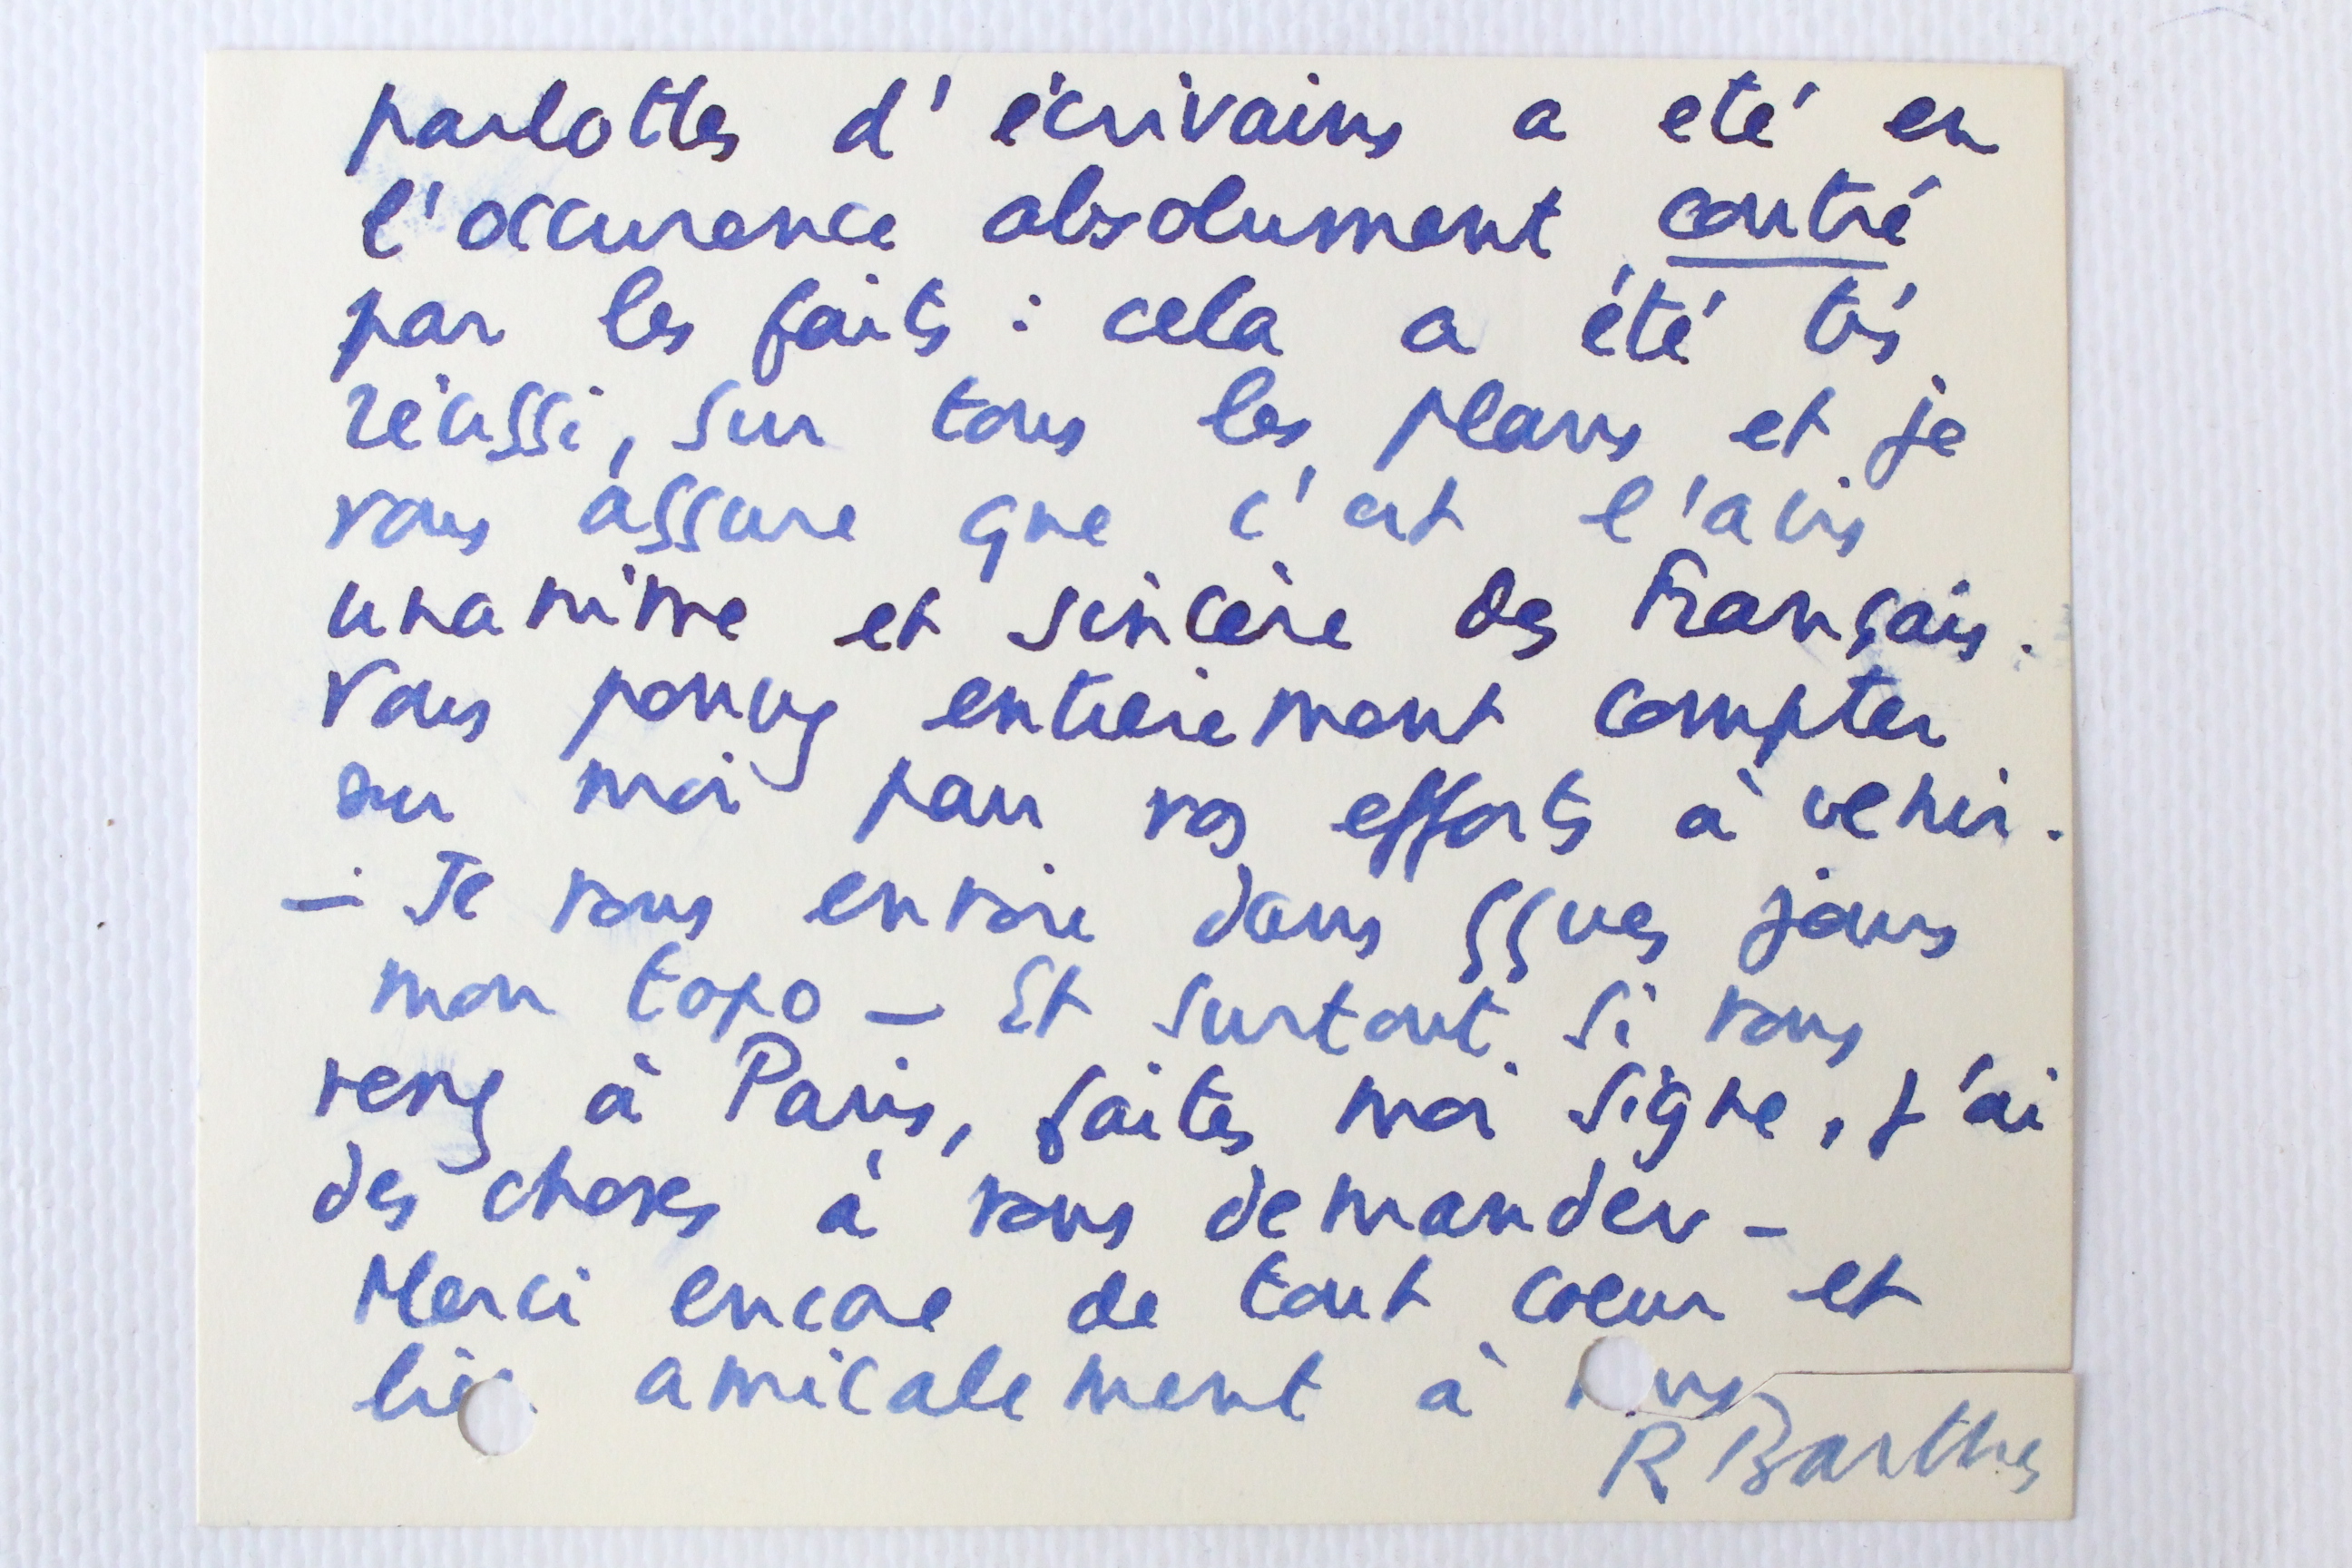 parlottes d'écrivains a été en
l'occurence absolument contré
par les faits : cela a été très
réussi, sur tous les plans et je
vous assure que c'est l'avis
unanime et sincère des Français.
Vous pouvez entièrement compter
sur moi pour vos efforts à venir.
— Je vous envoie dans qques jours
mon topo — Et surtout si vous
venez à Paris, faites moi signe, j'ai
des choses à vous demander —
Merci encore de tout coeur et
bien amicalement à vous
R Barthes